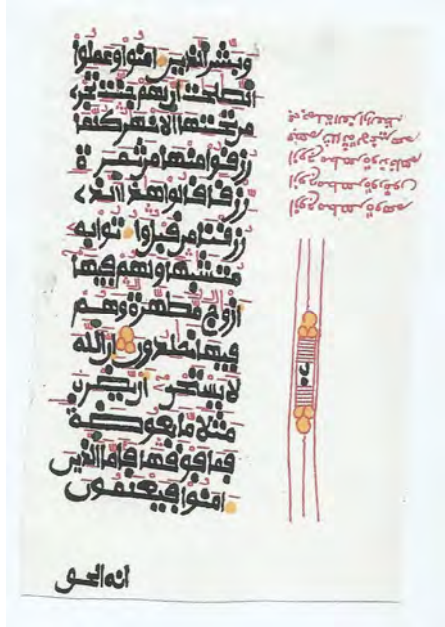 وبشر الذين امنوا وعملوا
الصلحت ان لهم جنت تجرے
من تحتها الانهر كلما
رزقوا منها من ثمرة
رزقا قالوا هذا الذے
رزقنا من قبل واتوا به
متشبها ولهم فيها
ازوج مطهرة وهم
فيها خلدون ان الله
لا يستحےۦ ان يضرب
مثلا ما بعوضة
فما فوقها فاما الذين
امنوا فيعلمون
انه الحق